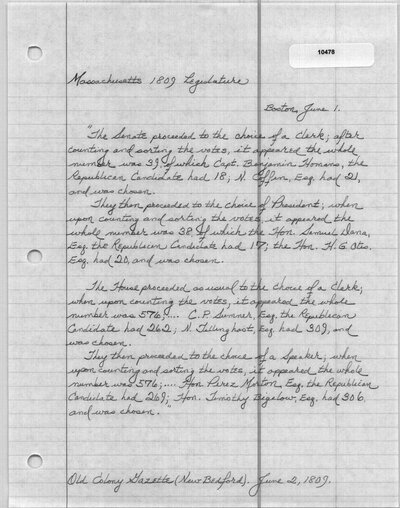 10478
Massachusetts 1809 Legislature
Boston, June 1.
"The Senate proceeded to the choice of a Clerk; after
counting and sorting the votes, it appeared the whole
number was 39 of which Capt. Benjamin Homans, the
Republican Candidate had 18; N. Coffin, Esq. had 21,
and was chosen.
They then proceeded to the choice of President; when
upon counting and sorting the votes, it appeared the
whole number was 38 of which the Hon. Samuel Dana,
Esq. the Republican Candidate had 17; the Hon. H. G. Otis.
Esq. had 20, and was chosen.
The House proceeded as usual to the choice of a Clerk;
when upon counting the votes, it appeared the whole
number was 576;.... C. P. Sumner, Esq. the Republican
Candidate had 262; N. Tillinghast, Esq. had 309, and
was chosen.
They then proceeded to the choice of a Speaker; when
upon counting and sorting the votes, it appeared the whole
number was 576;.... Hon. Perez Morton, Esq. the Republican
Candidate had 269; Hon. Timothy Bigalow, Esq. had 306
and was chosen."
Old Colony Gazette (New Bedford). June 2, 1809.